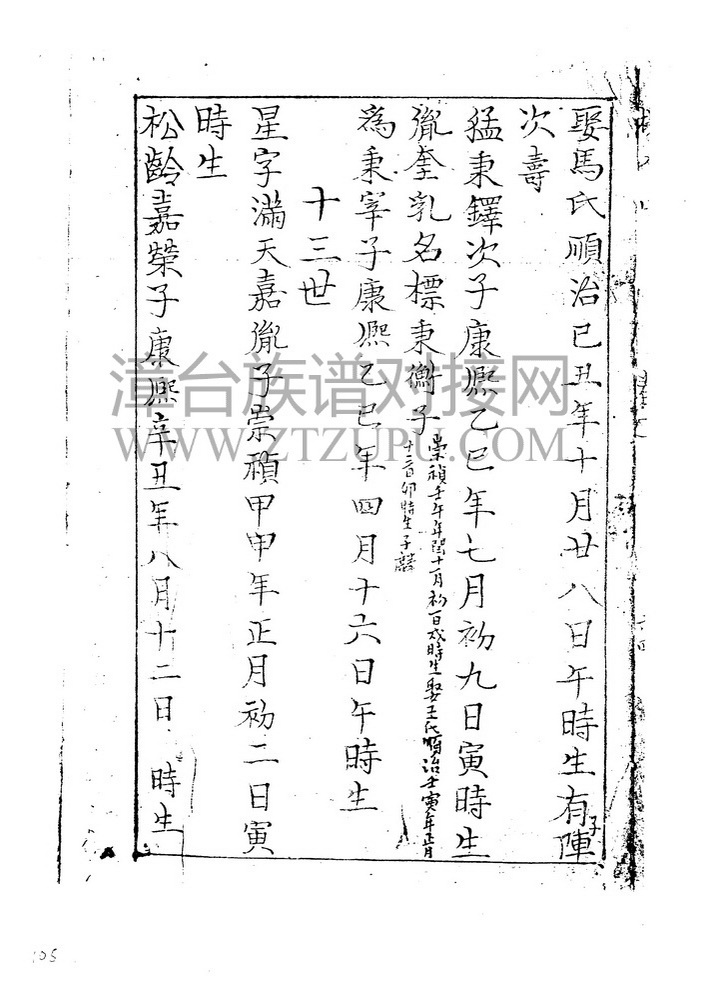 娶馬氏順治己丑年十月廿八日午時生有子陣
次壽
猛秉鐸次子康熙乙巳年七月初九日寅時生
胤奎乳名標秉衡子
崇禎壬午年閏十一月初一日戌時生娶王氏順治壬寅年正月
十二日卯時生子
為秉宰子康熙乙巳年四月十六日午時生
十三世
星字滿天嘉胤子崇禎甲申年正月初二日寅
時生
松齡嘉榮子康熙辛丑年八月十二日 時生
漳台族谱对接网
WWW.ZTZUPU.COM
105